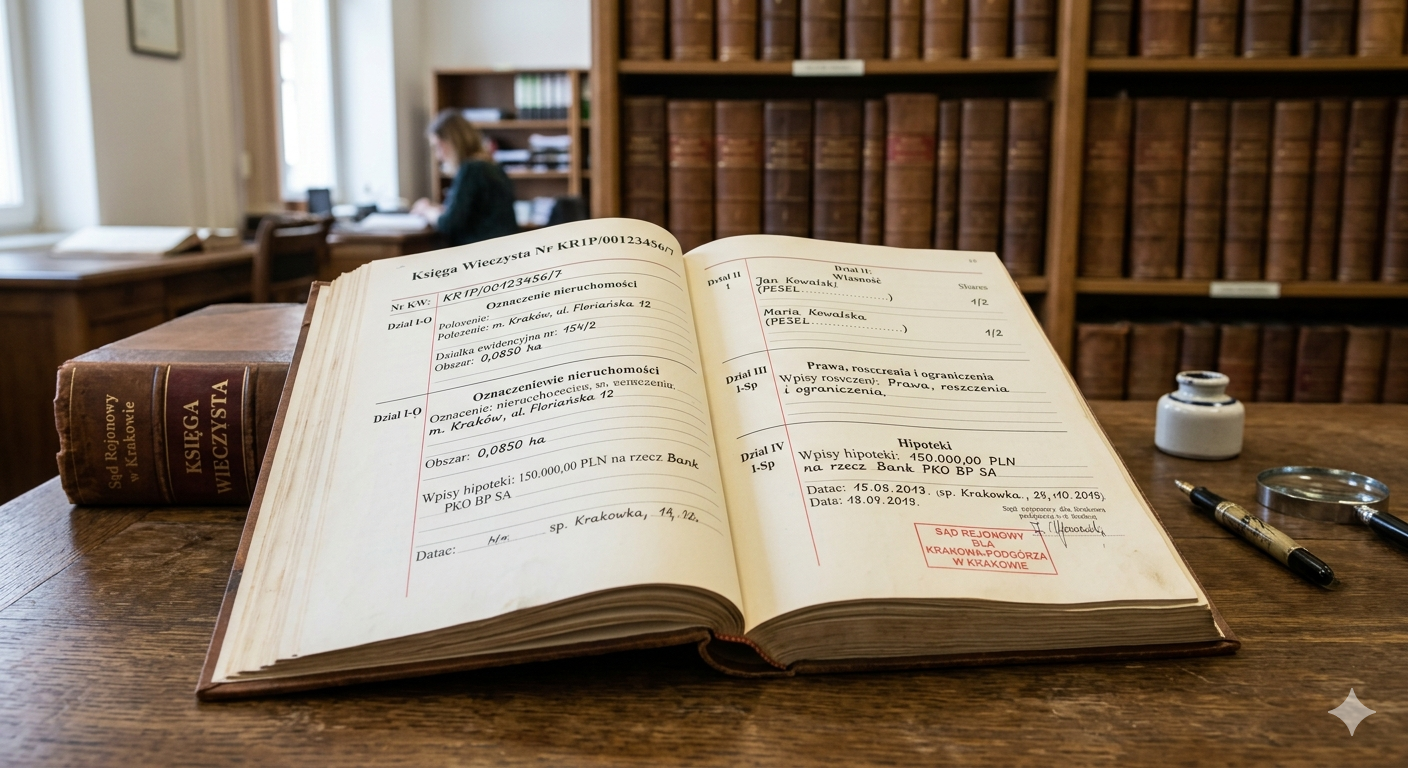 Księga Wieczysta Nr KR1P/00123456/7
Nr KW: KR1P/00123456/7
Dział I-O
Oznaczenie nieruchomości
Położenie: m. Kraków, ul. Floriańska 12
Działka ewidencyjna nr: 154/2
Obszar: 0,0850 ha
Dział I-O
Oznaczeniewie nieruchomości
m. Kraków, ul. Floriańska 12
Obszar: 0,0850 ha
Wpisy hipoteki: 150.000,00 PLN na rzecz Bank
PKO BP SA
sp. Krakowka,
Datae:
Dział II
1
Dział II:
Własność
Jan Kowalski
(PESEL......................)
1/2
Maria Kowalska
(PESEL......................)
1/2
Dział III
1-Sp
Prawa, roszczenia i ograniczenia
Prawa, roszczenia
i ograniczenia.
Dział IV
1-Sp
Hipoteki
Wpisy hipoteki: 150.000,00 PLN
na rzecz Bank PKO BP SA
Datae: 15.08.2013. (sp. Krakowka.,
Data: 18.09.2013.
SĄD REJONOWY
DLA
KRAKOWA-PODGÓRZA
W KRAKOWIE
Sąd Rojonowy
w Krakowie
KSIĘGA
WIECZYSTA